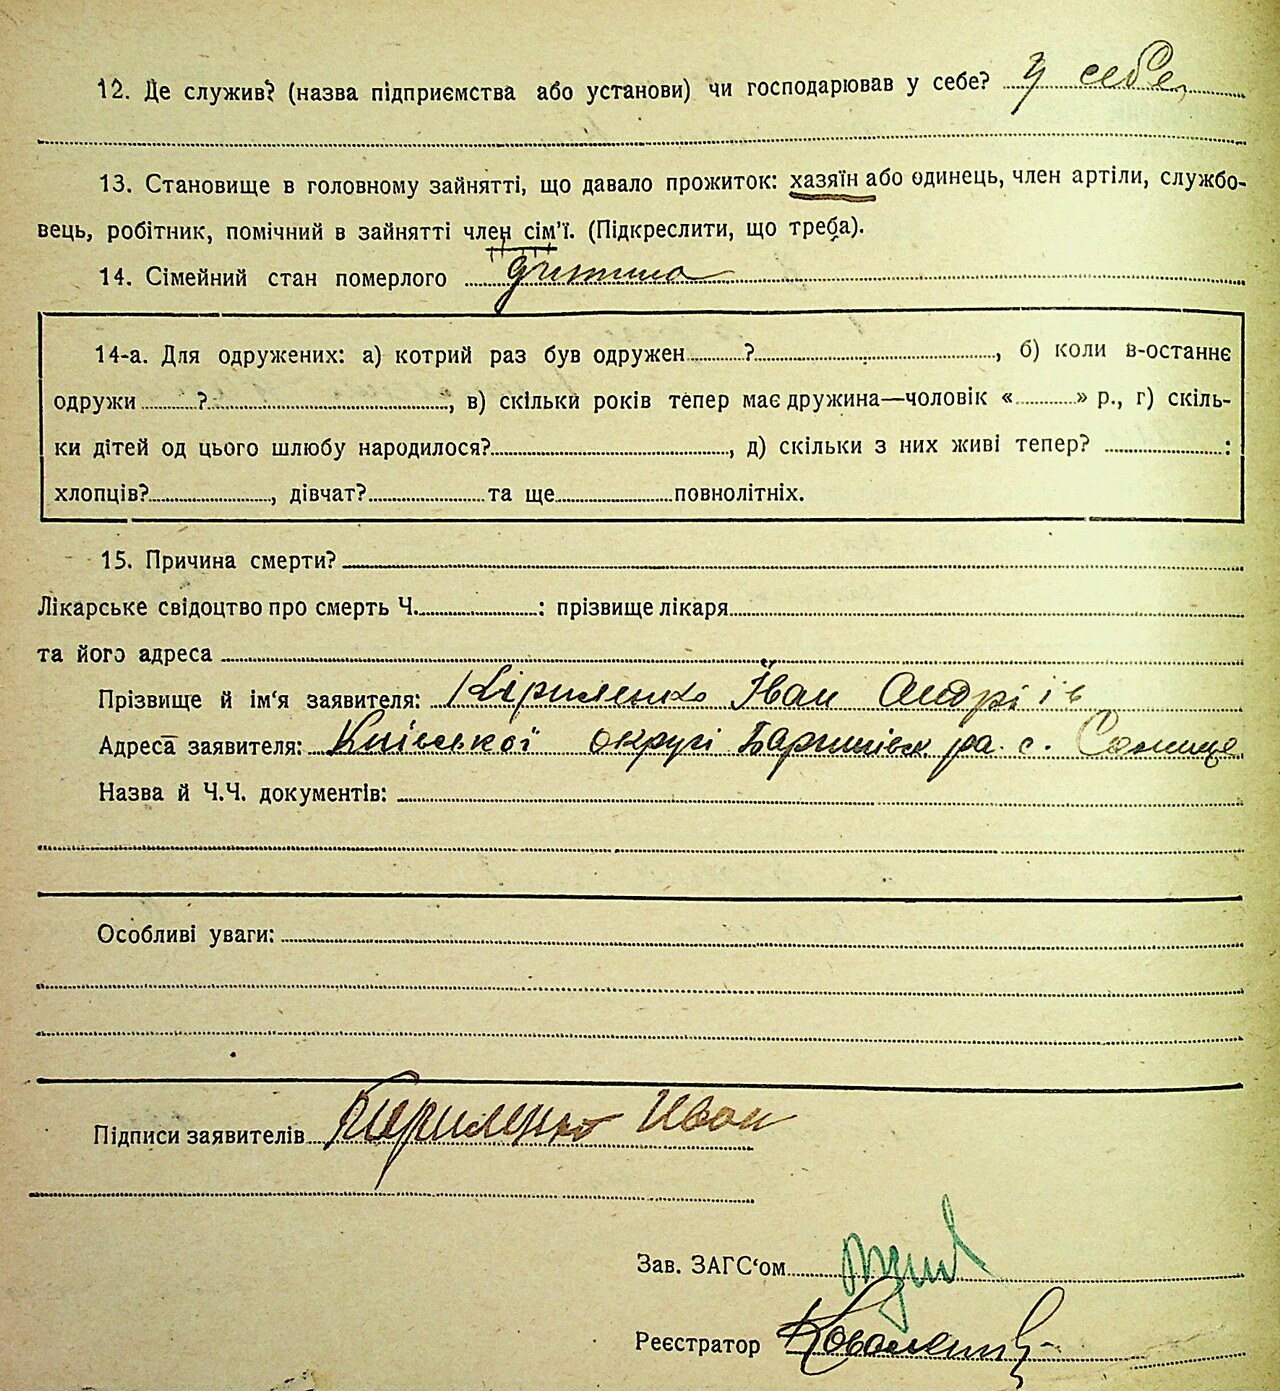 12. Де служив? (назва підприємства або установи) чи господарював у себе? У себе
13. Становище в головному зайнятті, що давало прожиток: хазяїн або одинець, член артіли, службо-
вець, робітник, помічний в зайнятті член сім'ї. (Підкреслити, що треба).
14. Сімейний стан померлого дитина
14-а. Для одружених: а) котрий раз був одружен ? , б) коли в-останнє
одружи ? , в) скільки років тепер має дружина—чоловік « » р., г) скіль-
ки дітей од цього шлюбу народилося? , д) скільки з них живі тепер? :
хлопців? , дівчат? та ще повнолітніх.
15. Причина смерти?
Лікарське свідоцтво про смерть Ч. : прізвище лікаря
та його адреса
Прізвище й ім'я заявителя: Кіриленко Іван Андріїв
Адреса заявителя: Київської округі Баришівськ ра. с.
Назва й Ч.Ч. документів:
Особливі уваги:
Підписи заявителів Кириленко Иван
Зав. ЗАГС'ом
Реєстратор